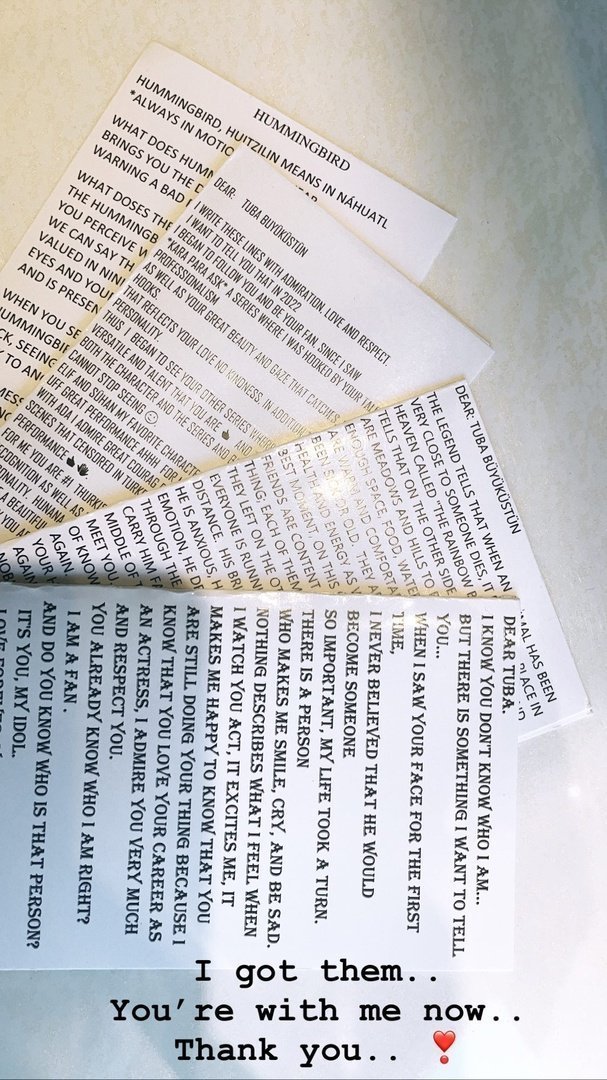 HUMMINGBIRD
HUMMINGBIRD, HUITZILIN MEANS IN NÁHUATL
*ALWAYS IN MOTIO
WHAT DOES HUMM
BRINGS YOU THE D
WARNING A BAD
WHAT DOSES THE
THE HUMMINGB
YOU PERCEIVE W
WE CAN SAY TH
VALUED IN NIN
EYES AND YOU
AND IS PRESEN
WHEN YOU SE
HUMMINGBIE
CK, SEEING
Y TO AN
MES
DEAR: TUBA BUYUKÜSTÜN
I WRITE THESE LINES WITH ADMIRATION, LOVE AND RESPECT.
I WANT TO TELL YOU THAT IN 2022
I BEGAN TO FOLLOW YOU AND BE YOUR FAN. SINCE I SAW
*KARA PARA ASK* A SERIES WHERE I WAS HOOKED BY YOUR TAL
PROFESSIONALISM
AS WELL AS YOUR GREAT BEAUTY AND GAZE THAT CATCHES
HOOKS.
THAT REFLECTS YOUR LOVE NO KINDNESS, IN ADDITION
PERSONALITY.
THUS I BEGAN TO SEE YOUR OTHER SERIES WHERE
VERSATILE AND TALENT THAT YOU ARE 👏 AND
BOTH THE CHARACTER AND THE SERIES AND
CANNOT STOP SEEING 😊
ELIF AND SÜHAN MY FAVORITE CHARACTE
UFF GREAT PERFORMANCE AHH, FOR
WITH ADA I ADMIRE GREAT COURAG
SCENES THAT CENSORED IN TURK
NG PERFORMANCE
FOR ME YOU ARE #1 THURKIS
COGNITION AS WELL AS
ONALITY. HUNANA
A BEAUTIFUL
YOU A
DEAR: TUBA BÜYÜKÜSTÜN
THE LEGEND TELLS THAT WHEN AN IMAL HAS BEEN
VERY CLOSE TO SOMEONE DIES, IT PLACE IN
HEAVEN CALLED "THE RAINBOW B
TELLS THAT ON THE OTHER SIDE
ARE MEADOWS AND HILLS TO
ENOUGH SPACE, FOOD, WATER
ARE WARM AND COMFORTA
BEEN SICK OR OLD, THEY
HEALTH AND ENERGY AS
BEST MOMENT, ON THIS
FRIENDS ARE CONTENT
THING: EACH OF THEM
THEY LEFT ON THE OT
EVERYONE IS RUNN
DISTANCE. HIS BR
HE IS ANXIOUS, H
EMOTION, HE D
THROUGH THE
CARRY HIM FA
MIDDLE OF
MEET YOU.
OF KNOW
AGAIN.
YOUR H
AGAIN
NOBO
DEAR TUBA.
I KNOW YOU DON'T KNOW WHO I AM...
BUT THERE IS SOMETHING I WANT TO TELL
YOU...
WHEN I SAW YOUR FACE FOR THE FIRST
TIME,
I NEVER BELIEVED THAT HE WOULD
BECOME SOMEONE
SO IMPORTANT, MY LIFE TOOK A TURN.
THERE IS A PERSON
WHO MAKES ME SMILE, CRY, AND BE SAD.
NOTHING DESCRIBES WHAT I FEEL WHEN
I WATCH YOU ACT, IT EXCITES ME, IT
MAKES ME HAPPY TO KNOW THAT YOU
ARE STILL DOING YOUR THING BECAUSE I
KNOW THAT YOU LOVE YOUR CAREER AS
AN ACTRESS, I ADMIRE YOU VERY MUCH
AND RESPECT YOU.
YOU ALREADY KNOW WHO I AM RIGHT?
I AM A FAN .
AND DO YOU KNOW WHO IS THAT PERSON?
IT'S YOU, MY IDOL.
I got them..
You're with me now..
Thank you.. ❣️